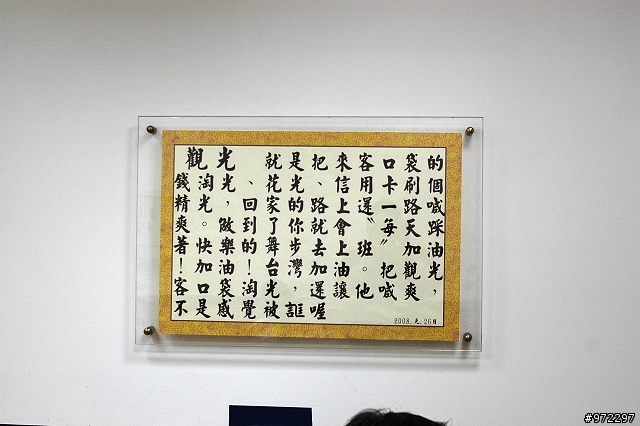 的個喊踩油光，
袋刷路天加觀爽
口卡一每〞把喊
客用還〝班。他
來信上會上油讓
把、路就去加還喔
是光的你步灣，誆
就花家了舞台光被
、回到的！淘覺
光光，做樂油袋感
觀淘光。快加口是
錢精爽著！客不
2008.元.26日
#972297